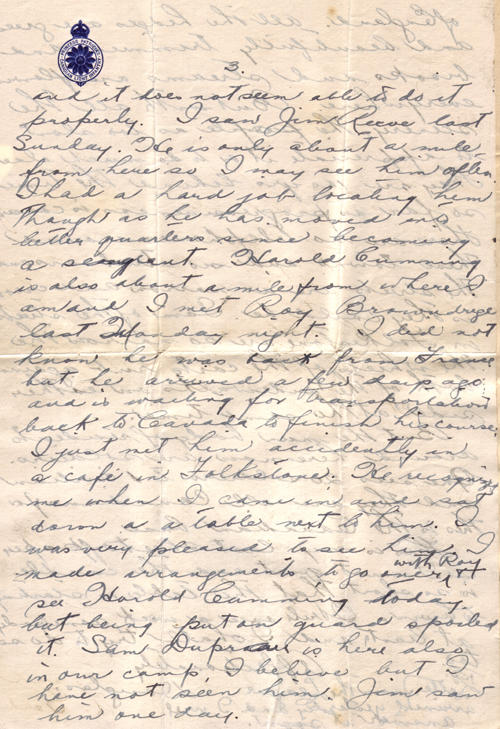 3.
and it does not seem able to do it
properly. I saw Jim Reeve last
Sunday. He is only about a mile
from here so I may see him often
I had a hard job locating him
though as he has moved into
better quarters since becoming
a sergeant. Harold Cumming
is also about a mile from where I
am and I met Roy Brownridge
last Monday night. I did not
know he was back from France
but he arrived a few days ago
and is waiting for transportation
back to Canada to finish his course.
I just met him accidently in
a café in Folkstone. He recogniz
me when I came in and sat
down a a table next to him. I
was very pleased to see him. I
made arrangements to go over with Roy &
see Harold Cumming today.
but being put on guard spoiled
it. Sam is here also
in our camp, I believe but I
have not seen him. Jim saw
him one day.